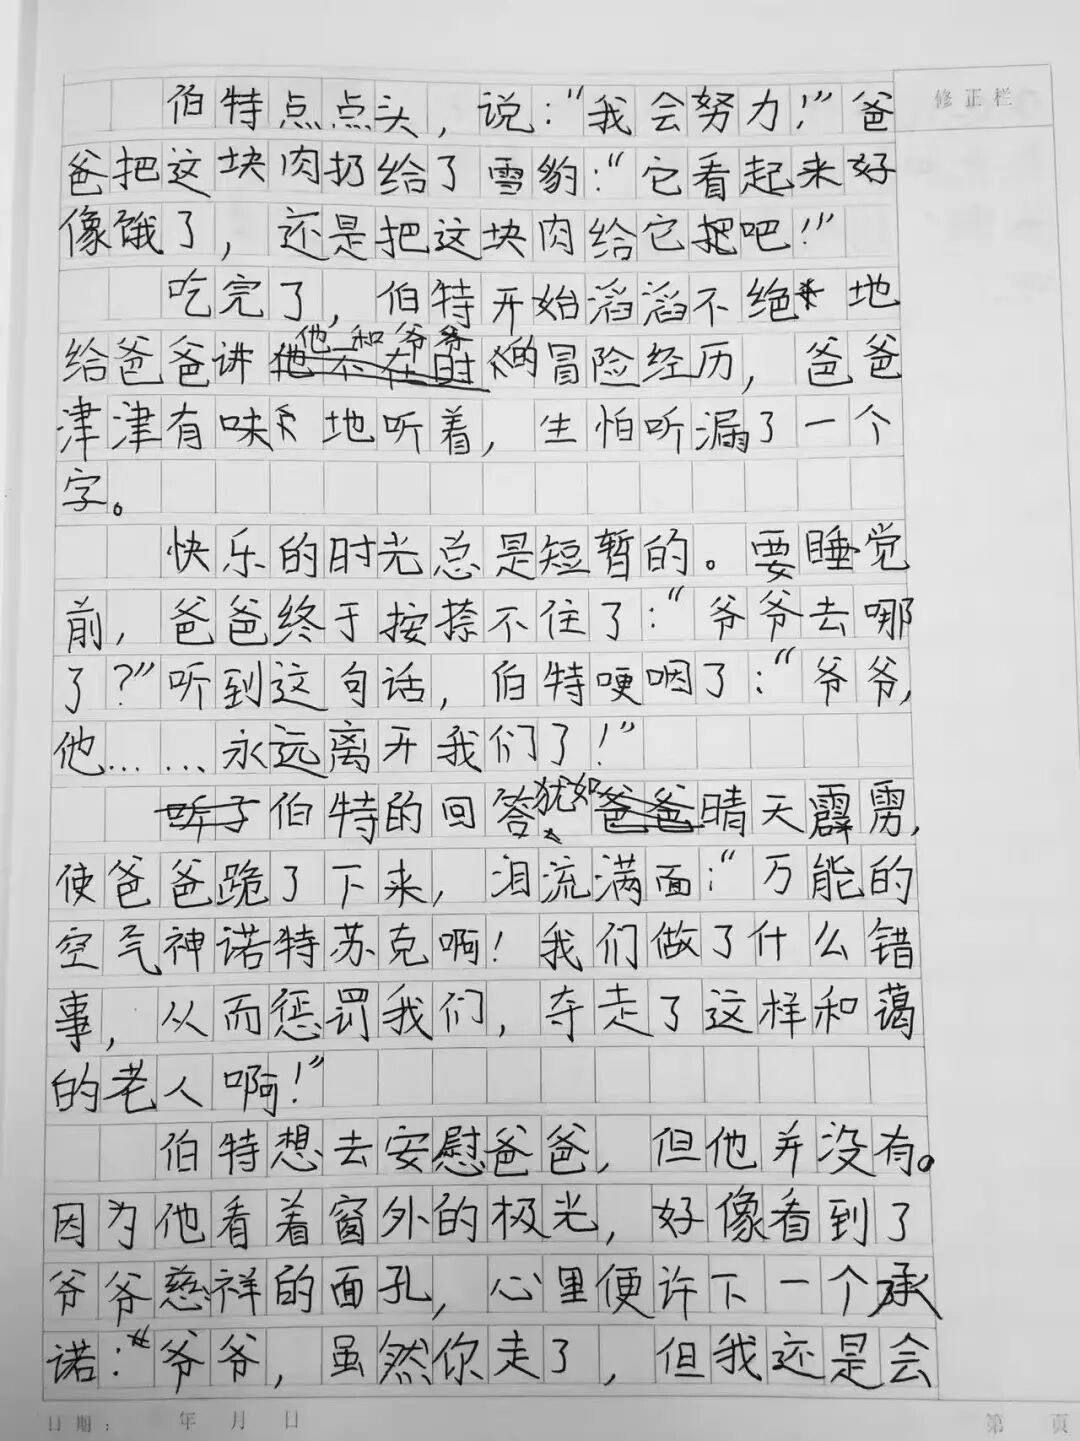 修正栏
伯特点点头，说：“我会努力！”爸
爸把这块肉扔给了雪豹：“它看起来好
像饿了，还是把这块肉给它把吧！”
吃完了，伯特开始滔滔不绝地
给爸爸讲他和爷爷的冒险经历，爸爸
津津有味地听着，生怕听漏了一个
字。
快乐的时光总是短暂的。要睡觉
前，爸爸终于按捺不住了：“爷爷去哪
了？”听到这句话，伯特哽咽了：“爷爷，
他……永远离开我们了！”
伯特的回答犹如晴天霹雳，
使爸爸跪了下来，泪流满面：“万能的
空气神诺特苏克啊！我们做了什么错
事，从而惩罚我们，夺走了这样和蔼
的老人啊！”
伯特想去安慰爸爸，但他并没有。
因为他看着窗外的极光，好像看到了
爷爷慈祥的面孔，心里便许下一个承
诺：“爷爷，虽然你走了，但我还是会
日期： 年 月 日 第 页